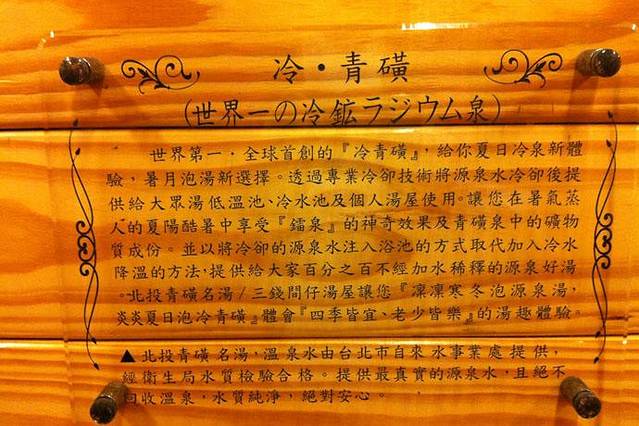 冷・青磺
(世界一の冷鉱ラジウム泉)
世界第一，全球首創的『冷青磺』，給你夏日冷泉新體
驗，暑月泡湯新選擇。透過專業冷卻技術將源泉水冷卻後提
供給大眾湯低溫池、冷水池及個人湯屋使用。讓您在暑氣蒸
人的夏陽酷暑中享受『鐳泉』的神奇效果及青磺泉中的礦物
質成份。並以將冷卻的源泉水注入浴池的方式取代加入冷水
降溫的方法，提供給大家百分之百不經加水稀釋的源泉好湯
。北投青磺名湯/三錢間仔湯屋讓您『凜凜寒冬泡源泉湯，
炎炎夏日泡冷青磺』體會『四季皆宜、老少皆樂』的湯趣體驗。
▲北投青磺名湯，溫泉水由台北市自來水事業處提供，
經衛生局水質檢驗合格。提供最真實的源泉水，且絕不
回收溫泉，水質純淨，絕對安心。